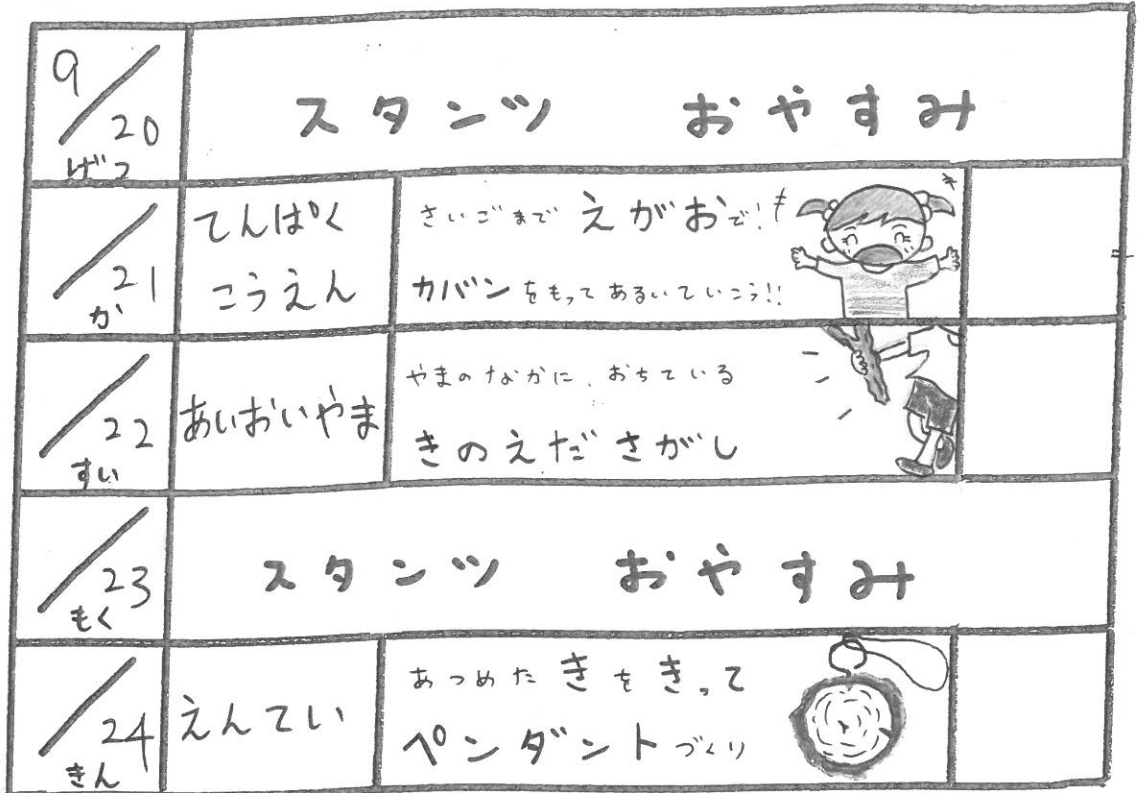 9/20
げつ
スタンツ おやすみ
/21
か
てんぱく
こうえん
さいごまで えがおで!
カバンをもってあるいていこう!!
/22
すい
あいおいやま
やまのなかに、おちている
きのえださがし
/23
もく
スタンツ おやすみ
/24
きん
えんてい
あつめた きを きって
ペンダントづくり